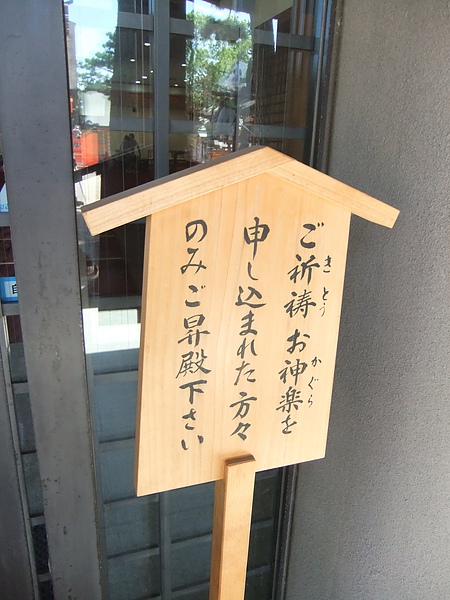 ご祈祷お神楽を
きとう
かぐら
申し込まれた方々
のみご昇殿下さい